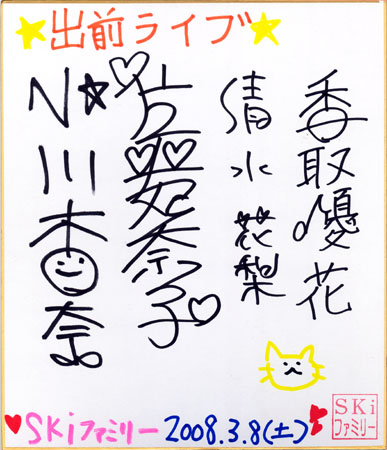 ★出前ライブ★
香取優花
清水花梨
奈子
川杏奈
SKiファミリー 2008.3.8(土)
SKi
ファミリー